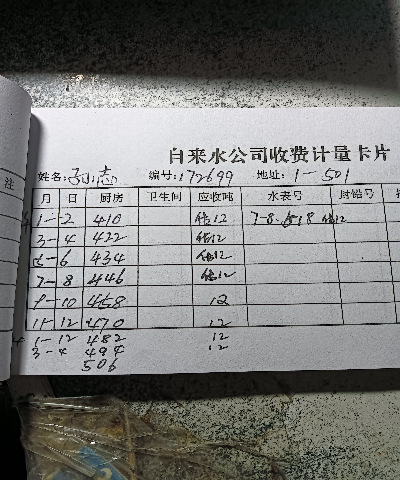 自来水公司收费计量卡片
姓名: 孙志 编号: 172699 地址: 1-501
注
月 日 厨房 卫生间 应收吨 水表号 封铅号
1-2 410 估12 7-8 估18 估12
3-4 422 估12
5-6 434 估12
7-8 446 估12
9-10 458 12
11-12 470 12
1-12 482 12
3-4 494 12
506